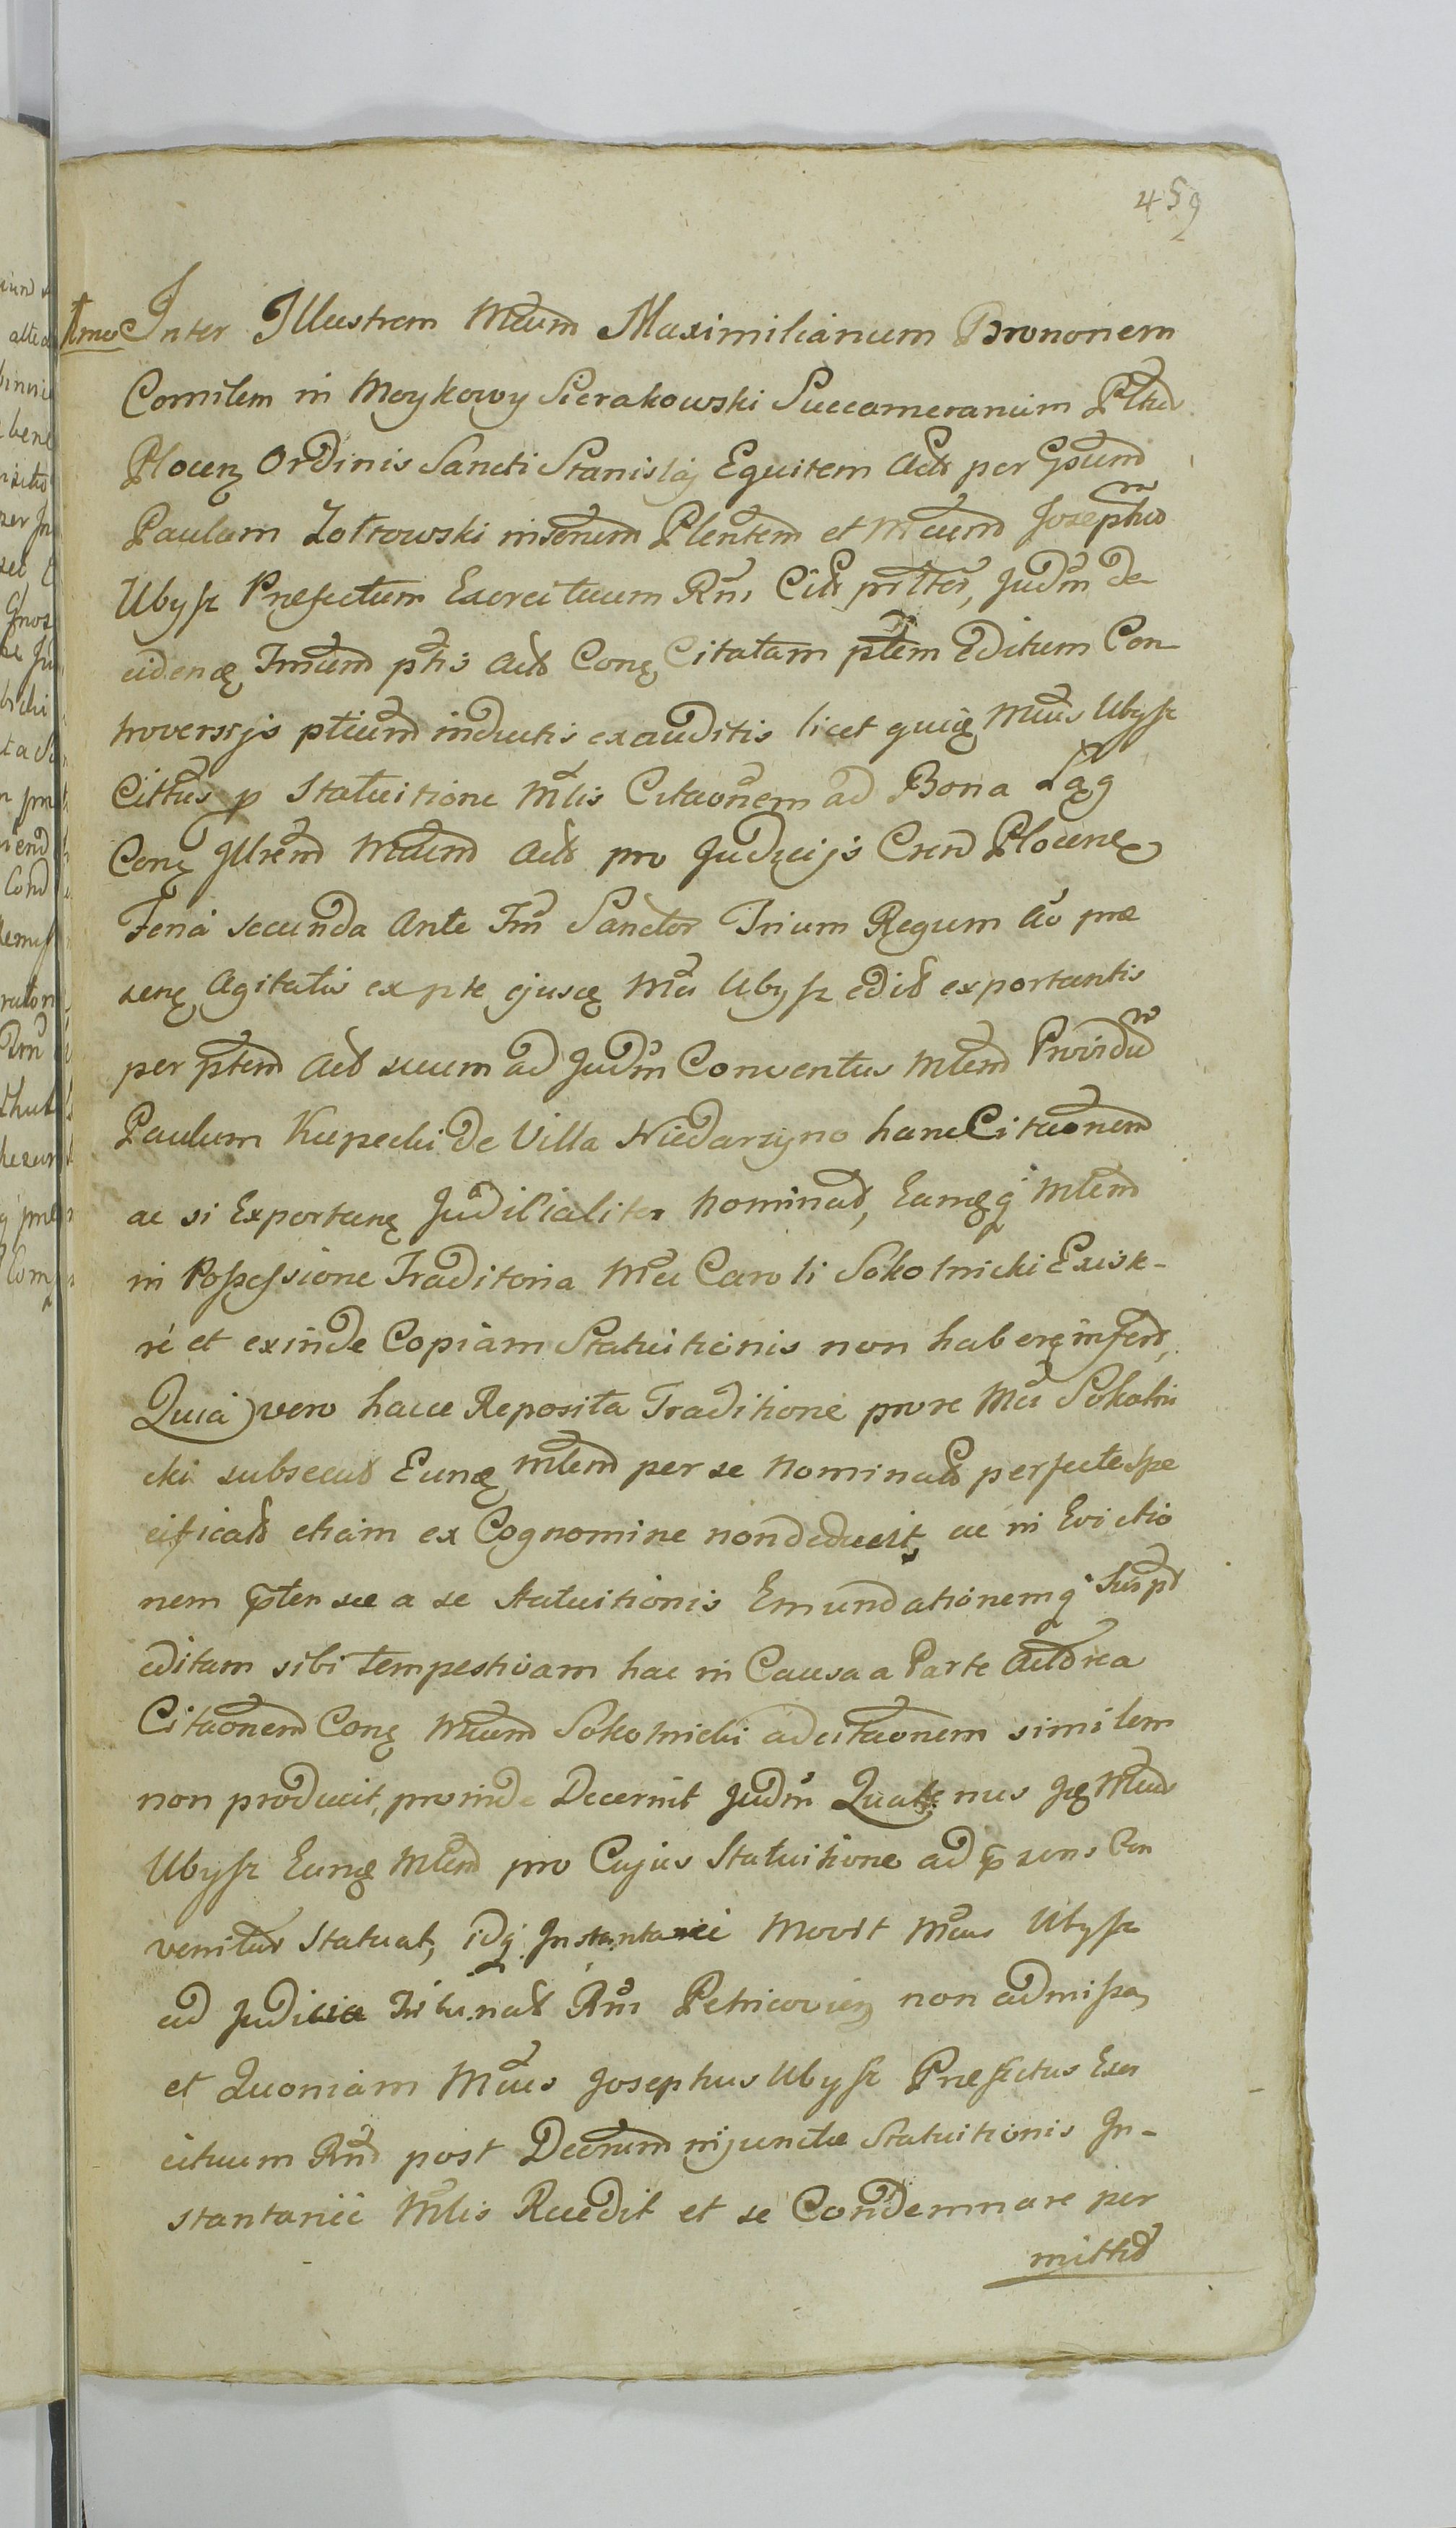 459
Imo Inter Illustrem Mcum Maximilianum Brunonem
Comitem in Moykowy Sierakowski Succameranium Pltus
Plocen Ordinis Sancti Stanislaj Equitem Act per Gsum
Paulum Zoltowski insenum Plentem et Mcum Josephum
Ubysz Praefectum Exercituum Rni Citt prlter, Judm de
cidend Imum ptis Act Con Citatam ptem Editum Con
troversijs ptium inductis exauditis licet quid Mcus Ubysz
Cittus p Statuitione Mtis Citaonem ad Bona Łąg
Con Illrem Mcum Act pro Judicijs Cren Plocen
Feria secunda Ante Fm Sanctor Trium Regum Ao prae
sen Agitatis ex pte ejusd Mci Ubysz edit exportantis
per ptem Act suum ad Judm Conventus Mtem Providum
Paulum Kupecki de Villa Niedarzyno hanc Citaonem
ac si Exportan Judicialiter Nominat, Eamqq Mtem
in Possessione Traditoria Mci Caroli Sokolnicki Existe-
re et exinde Copiam Statuitionis non habere infert,
Quia vero hacce Reposita Traditione pro re Mci Sokolni
cki subsecut Eund Mtem per se Nominat perfecte spe
cificat etiam ex Cognomine non deducit, ac in Evictio
nem ptensae a se Statuitionis Emundationemq
editam sibi tempestivam hac in Causa a Parte Actorea
Citaonem Con Mcum Sokolnicki ad citaonem similem
non producit, proinde Decernit Judm Quatenus Id Mcus
Ubysz Eund Mtem pro Cujus Statuitione ad psens Con
venitur Statuat, idq Instantanee Movit Mcus Ubysz
ad Judicia Tribunat Rni Petricovien non admissa,
et Quoniam Mcus Josephus Ubysz Praefectus Exer
cituum Rni post Decretum injunctae Statuitionis In-
stantanee Mtis Recedit et se Condemnare per
mittit